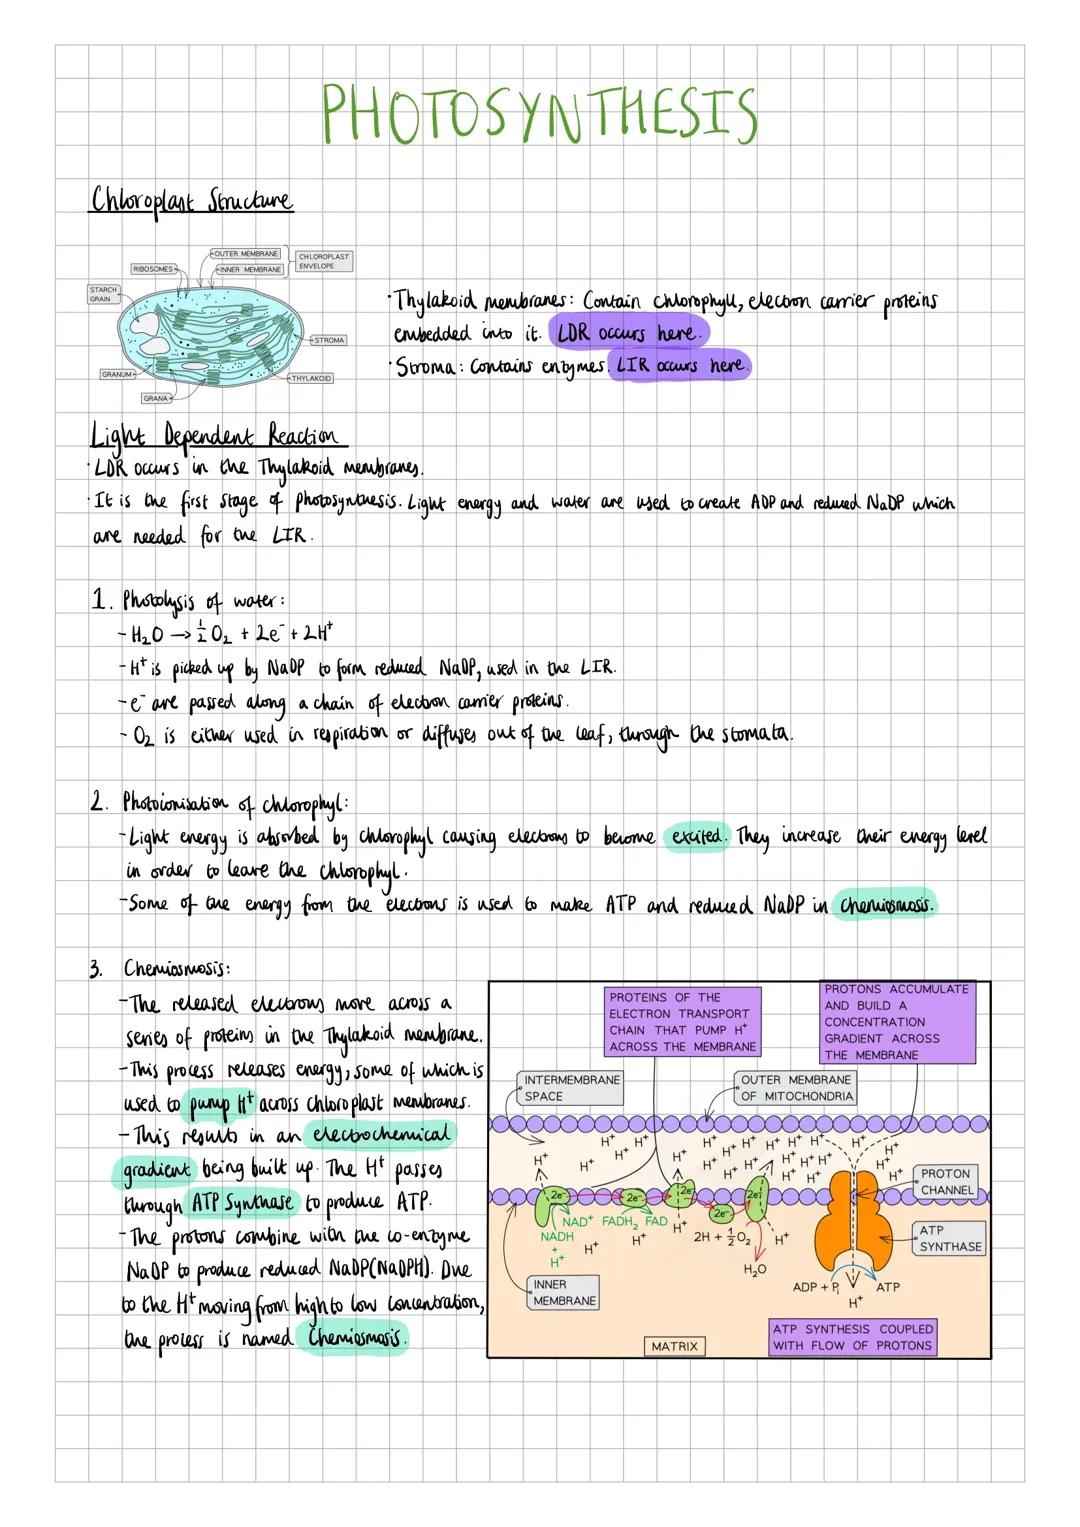 PHOTOSYNTHESIS
Chloroplast Structure
OUTER MEMBRANE
INNER MEMBRANE
CHLOROPLAST
ENVELOPE
RIBOSOMES
STARCH
GRAIN
STROMA
GRANUM
THYLAKOID
GRANA
· Thylakoid membranes: Contain chlorophyll, electron carrier proteins
embedded into it. LDR occurs here.
· Stroma: Contains enzymes. LIR occurs here.
Light Dependent Reaction
· LDR occurs in the Thylakoid membranes.
· It is the first stage of photosynthesis. Light energy and water are used to create ADP and reduced NaDP which
are needed for the LIR.
1. Photolysis of water:
- H₂O → ½ O₂ + 2e⁻ + 2H⁺
- H⁺ is picked up by NaDP to form reduced NaDP, used in the LIR.
- e⁻ are passed along a chain of electron carrier proteins.
- O₂ is either used in respiration or diffuses out of the leaf, through the stomata.
2. Photoionisation of chlorophyl:
- Light energy is absorbed by chlorophyl causing electrons to become excited. They increase their energy level
in order to leave the chlorophyl.
- Some of the energy from the electrons is used to make ATP and reduced NaDP in chemiosmosis.
3. Chemiosmosis:
- The released electrons move across a
series of proteins in the Thylakoid membrane.
- This process releases energy, some of which is
used to pump H⁺ across chloroplast membranes.
- This results in an electrochemical
gradient being built up. The H⁺ passes
through ATP Synthase to produce ATP.
- The protons combine with the co-enzyme
NaDP to produce reduced NaDP(NaDPH). Due
to the H⁺ moving from high to low concentration,
the process is named Chemiosmosis.
PROTEINS OF THE
ELECTRON TRANSPORT
CHAIN THAT PUMP H⁺
ACROSS THE MEMBRANE
PROTONS ACCUMULATE
AND BUILD A
CONCENTRATION
GRADIENT ACROSS
THE MEMBRANE
INTERMEMBRANE
SPACE
OUTER MEMBRANE
OF MITOCHONDRIA
H⁺ H⁺ H⁺ H⁺ H⁺ H⁺ H⁺ H⁺ H⁺
H⁺ H⁺ H⁺ H⁺ H⁺ H⁺ H⁺ H⁺ H⁺
H⁺ H⁺ H⁺ H⁺ H⁺
PROTON
CHANNEL
2e⁻ 2e⁻ 2e⁻ 2e⁻ 2e⁻
NAD⁺ FADH₂ FAD
NADH
+
H⁺
H⁺ H⁺ H⁺
2H + ½O₂
H⁺
H₂O
ATP
SYNTHASE
ADP + Pᵢ
ATP
H⁺
INNER
MEMBRANE
MATRIX
ATP SYNTHESIS COUPLED
WITH FLOW OF PROTONS